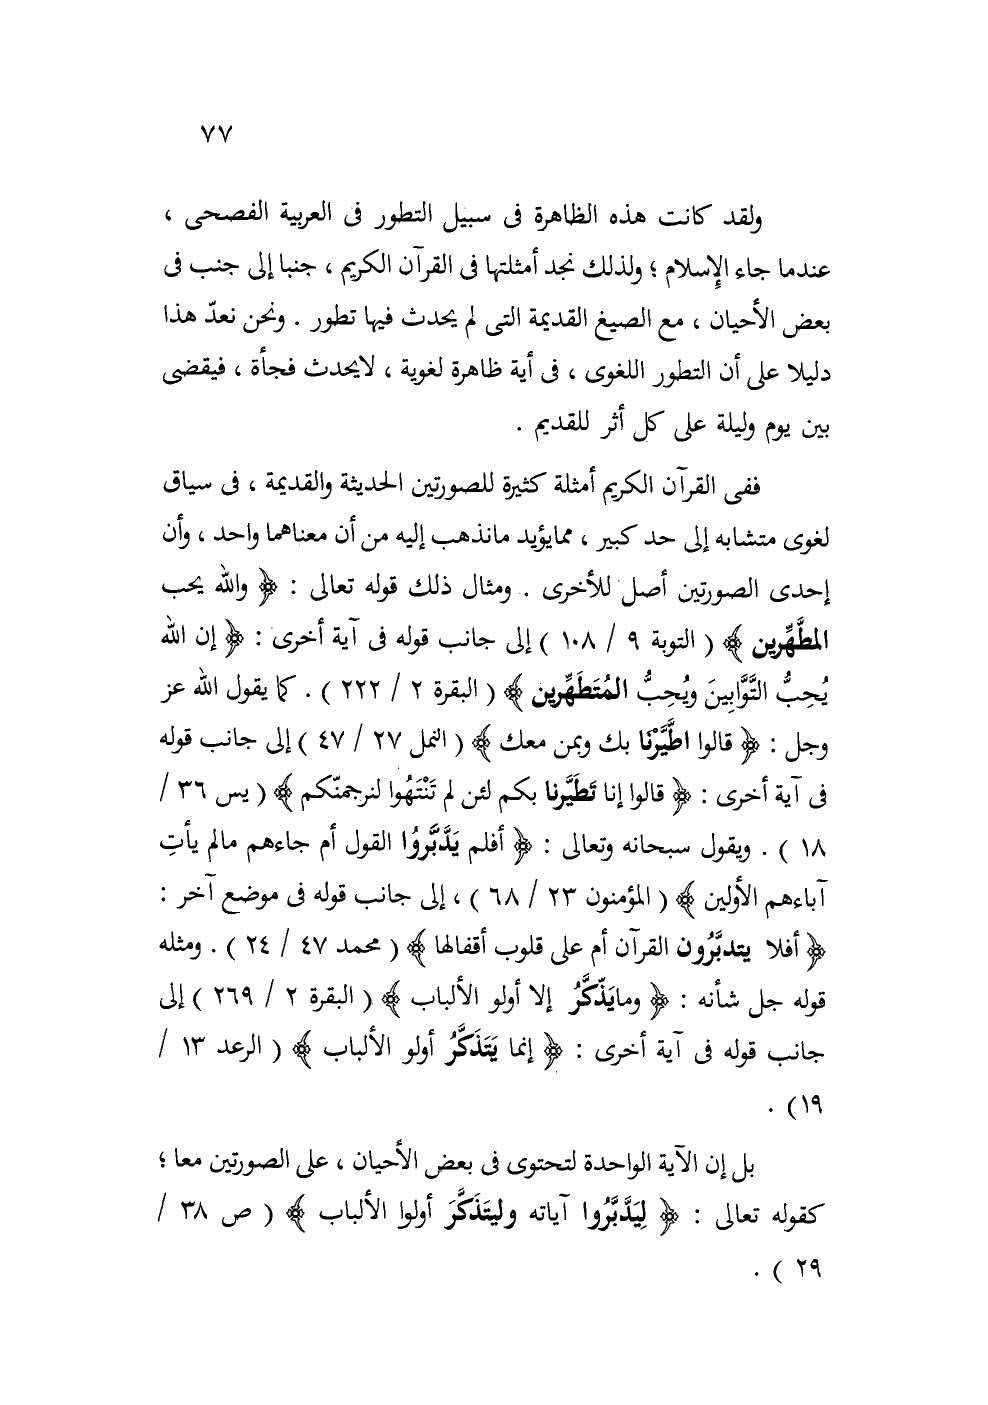 ٧٧
ولقد كانت هذه الظاهرة فى سبيل التطور فى العربية الفصحى ،
عندما جاء الإسلام ؛ ولذلك نجد أمثلتها فى القرآن الكريم ، جنبا إلى جنب فى
بعض الأحيان ، مع الصيغ القديمة التى لم يحدث فيها تطور . ونحن نعدّ هذا
دليلا على أن التطور اللغوى ، فى أية ظاهرة لغوية ، لايحدث فجأة ، فيقضى
بين يوم وليلة على كل أثر للقديم .
ففى القرآن الكريم أمثلة كثيرة للصورتين الحديثة والقديمة ، فى سياق
لغوى متشابه إلى حد كبير ، ممايؤيد مانذهب إليه من أن معناهما واحد ، وأن
إحدى الصورتين أصل للأخرى . ومثال ذلك قوله تعالى : ﴿ والله يحب
المطَّهِّرين ﴾ ( التوبة ٩ / ١٠٨ ) إلى جانب قوله فى آية أخرى : ﴿ إن الله
يُحِبُّ التَّوَّابِينَ ويُحِبُّ المُتَطَهِّرِين ﴾ ( البقرة ٢ / ٢٢٢ ) . كما يقول الله عز
وجل : ﴿ قالوا اطَّيَّرْنَا بك وبمن معك ﴾ ( النمل ٢٧ / ٤٧ ) إلى جانب قوله
فى آية أخرى : ﴿ قالوا إنا تَطَيَّرنا بكم لئن لم تَنْتَهُوا لنرجمنّكم ﴾ ( يس ٣٦ /
١٨ ) . ويقول سبحانه وتعالى : ﴿ أفلم يَدَّبَّروُا القول أم جاءهم مالم يأتِ
آباءهم الأولين ﴾ ( المؤمنون ٢٣ / ٦٨ ) ، إلى جانب قوله فى موضع آخر :
﴿ أفلا يتدبَّرُون القرآن أم على قلوب أقفالها ﴾ ( محمد ٤٧ / ٢٤ ) . ومثله
قوله جل شأنه : ﴿ ومايَذّكَّرُ إلا أولو الألباب ﴾ ( البقرة ٢ / ٢٦٩ ) إلى
جانب قوله فى آية أخرى : ﴿ إنما يَتَذَكَّرُ أولو الألباب ﴾ ( الرعد ١٣ /
١٩) .
بل إن الآية الواحدة لتحتوى فى بعض الأحيان ، على الصورتين معا ؛
كقوله تعالى : ﴿ لِيَدَّبَّرُوا آياته وليتَذَكَّرَ أولوا الألباب ﴾ ( ص ٣٨ /
٢٩ ) .